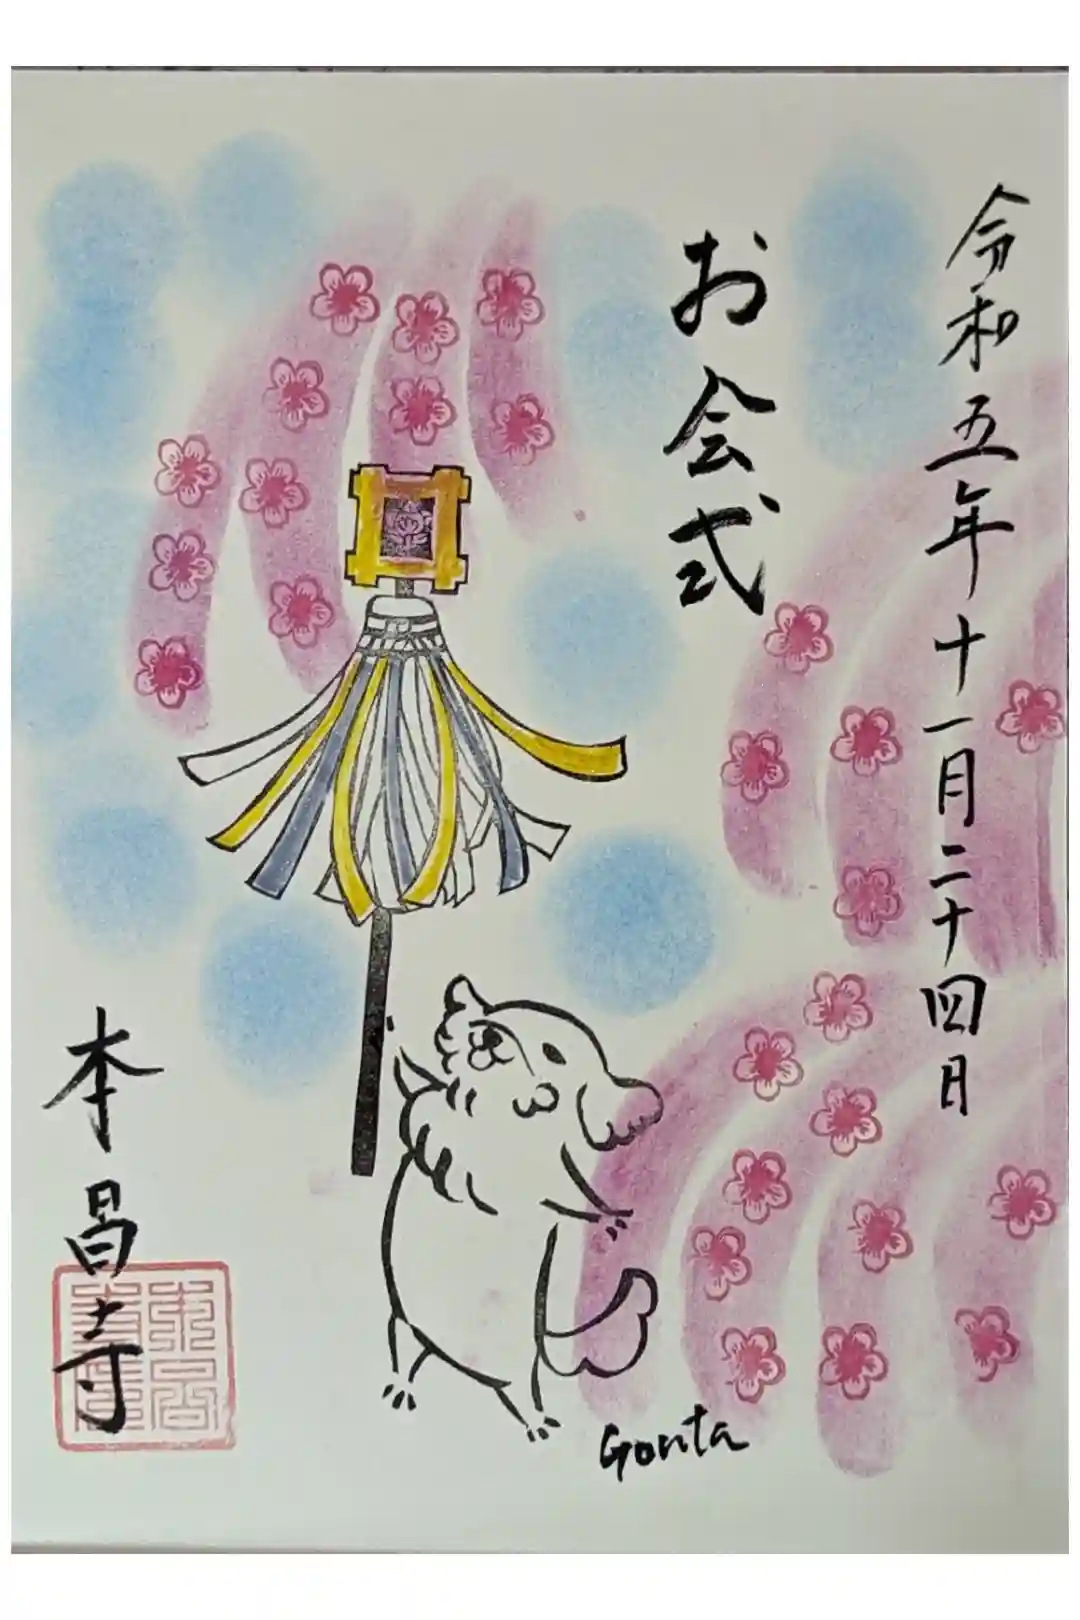 令和五年十一月二十四日
お会式
本昌寺
Gonta